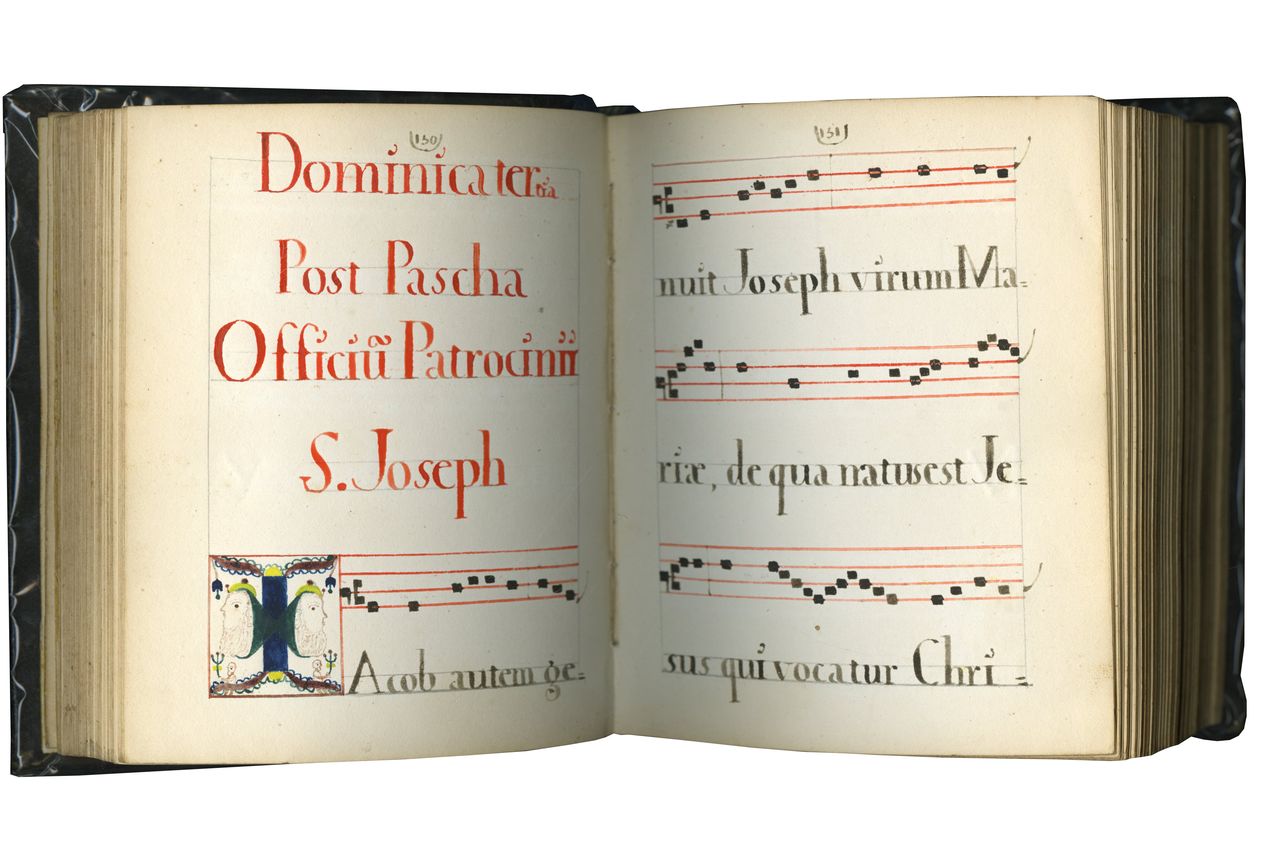 130
Dominica tertia
Post Pascha
Officiũ Patrocinii
S. Joseph
IAcob autem ge=
131
nuit Joseph virum Ma=
riæ, de qua natus est Je=
sus qui vocatur Chri=